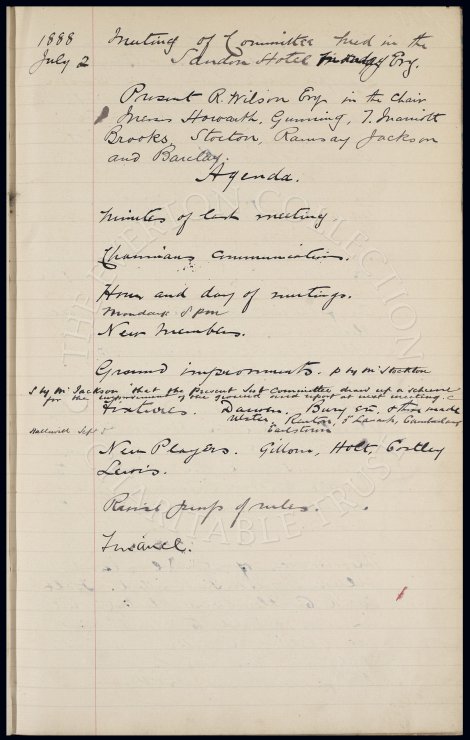 1888 Meeting of Committee held in the
July 2 Sandon Hotel
Present R. Wilson Esq in the Chair
Messrs Howarth, Gunning, T. Marriott
Brooks, Stocton, Ramsay Jackson
and Barclay.
Agenda.
Minutes of last meeting
Chairmans communications.
Hour and day of meetings.
Mondays 8 pm
New Members.
Ground improvements. P by Mr Stockton
S by Mr Jackson that the present Sub Committee draw up a scheme
for the improvement of the ground and report at next meeting. C
Fixtures. Darwen, Bury &c,
Renton, Cumberland
Halliwell Sept 8 Earlstown
New Players. Holt, Costley
Lewis.
of rules.
Finance.
THE EVERTON COLLECTION
CHARITABLE TRUST